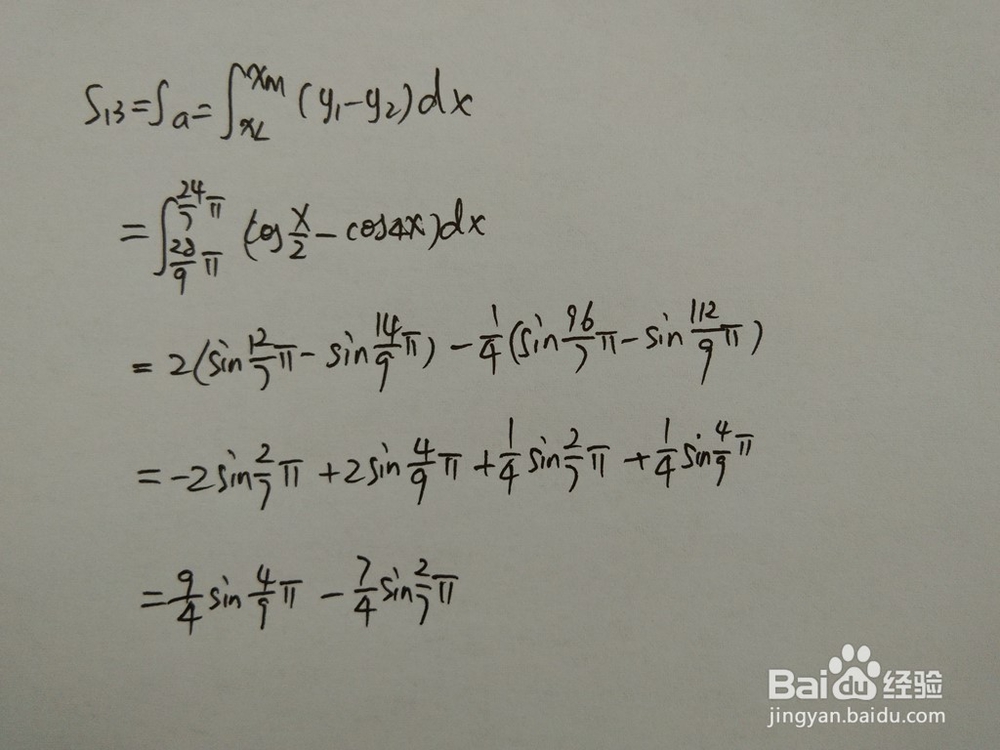 S₁₃=Sa=∫_{xL}^{xM}(y₁-y₂)dx
=∫_{28/9 π}^{24/7 π}(cos x/2 - cos4x)dx
=2(sin 12/7 π - sin 14/9 π) - 1/4(sin 96/7 π - sin 112/9 π)
=-2sin 2/7 π + 2sin 4/9 π + 1/4 sin 2/7 π + 1/4 sin 4/9 π
=9/4 sin 4/9 π - 7/4 sin 2/7 π
Baidu经验
jingyan.baidu.com